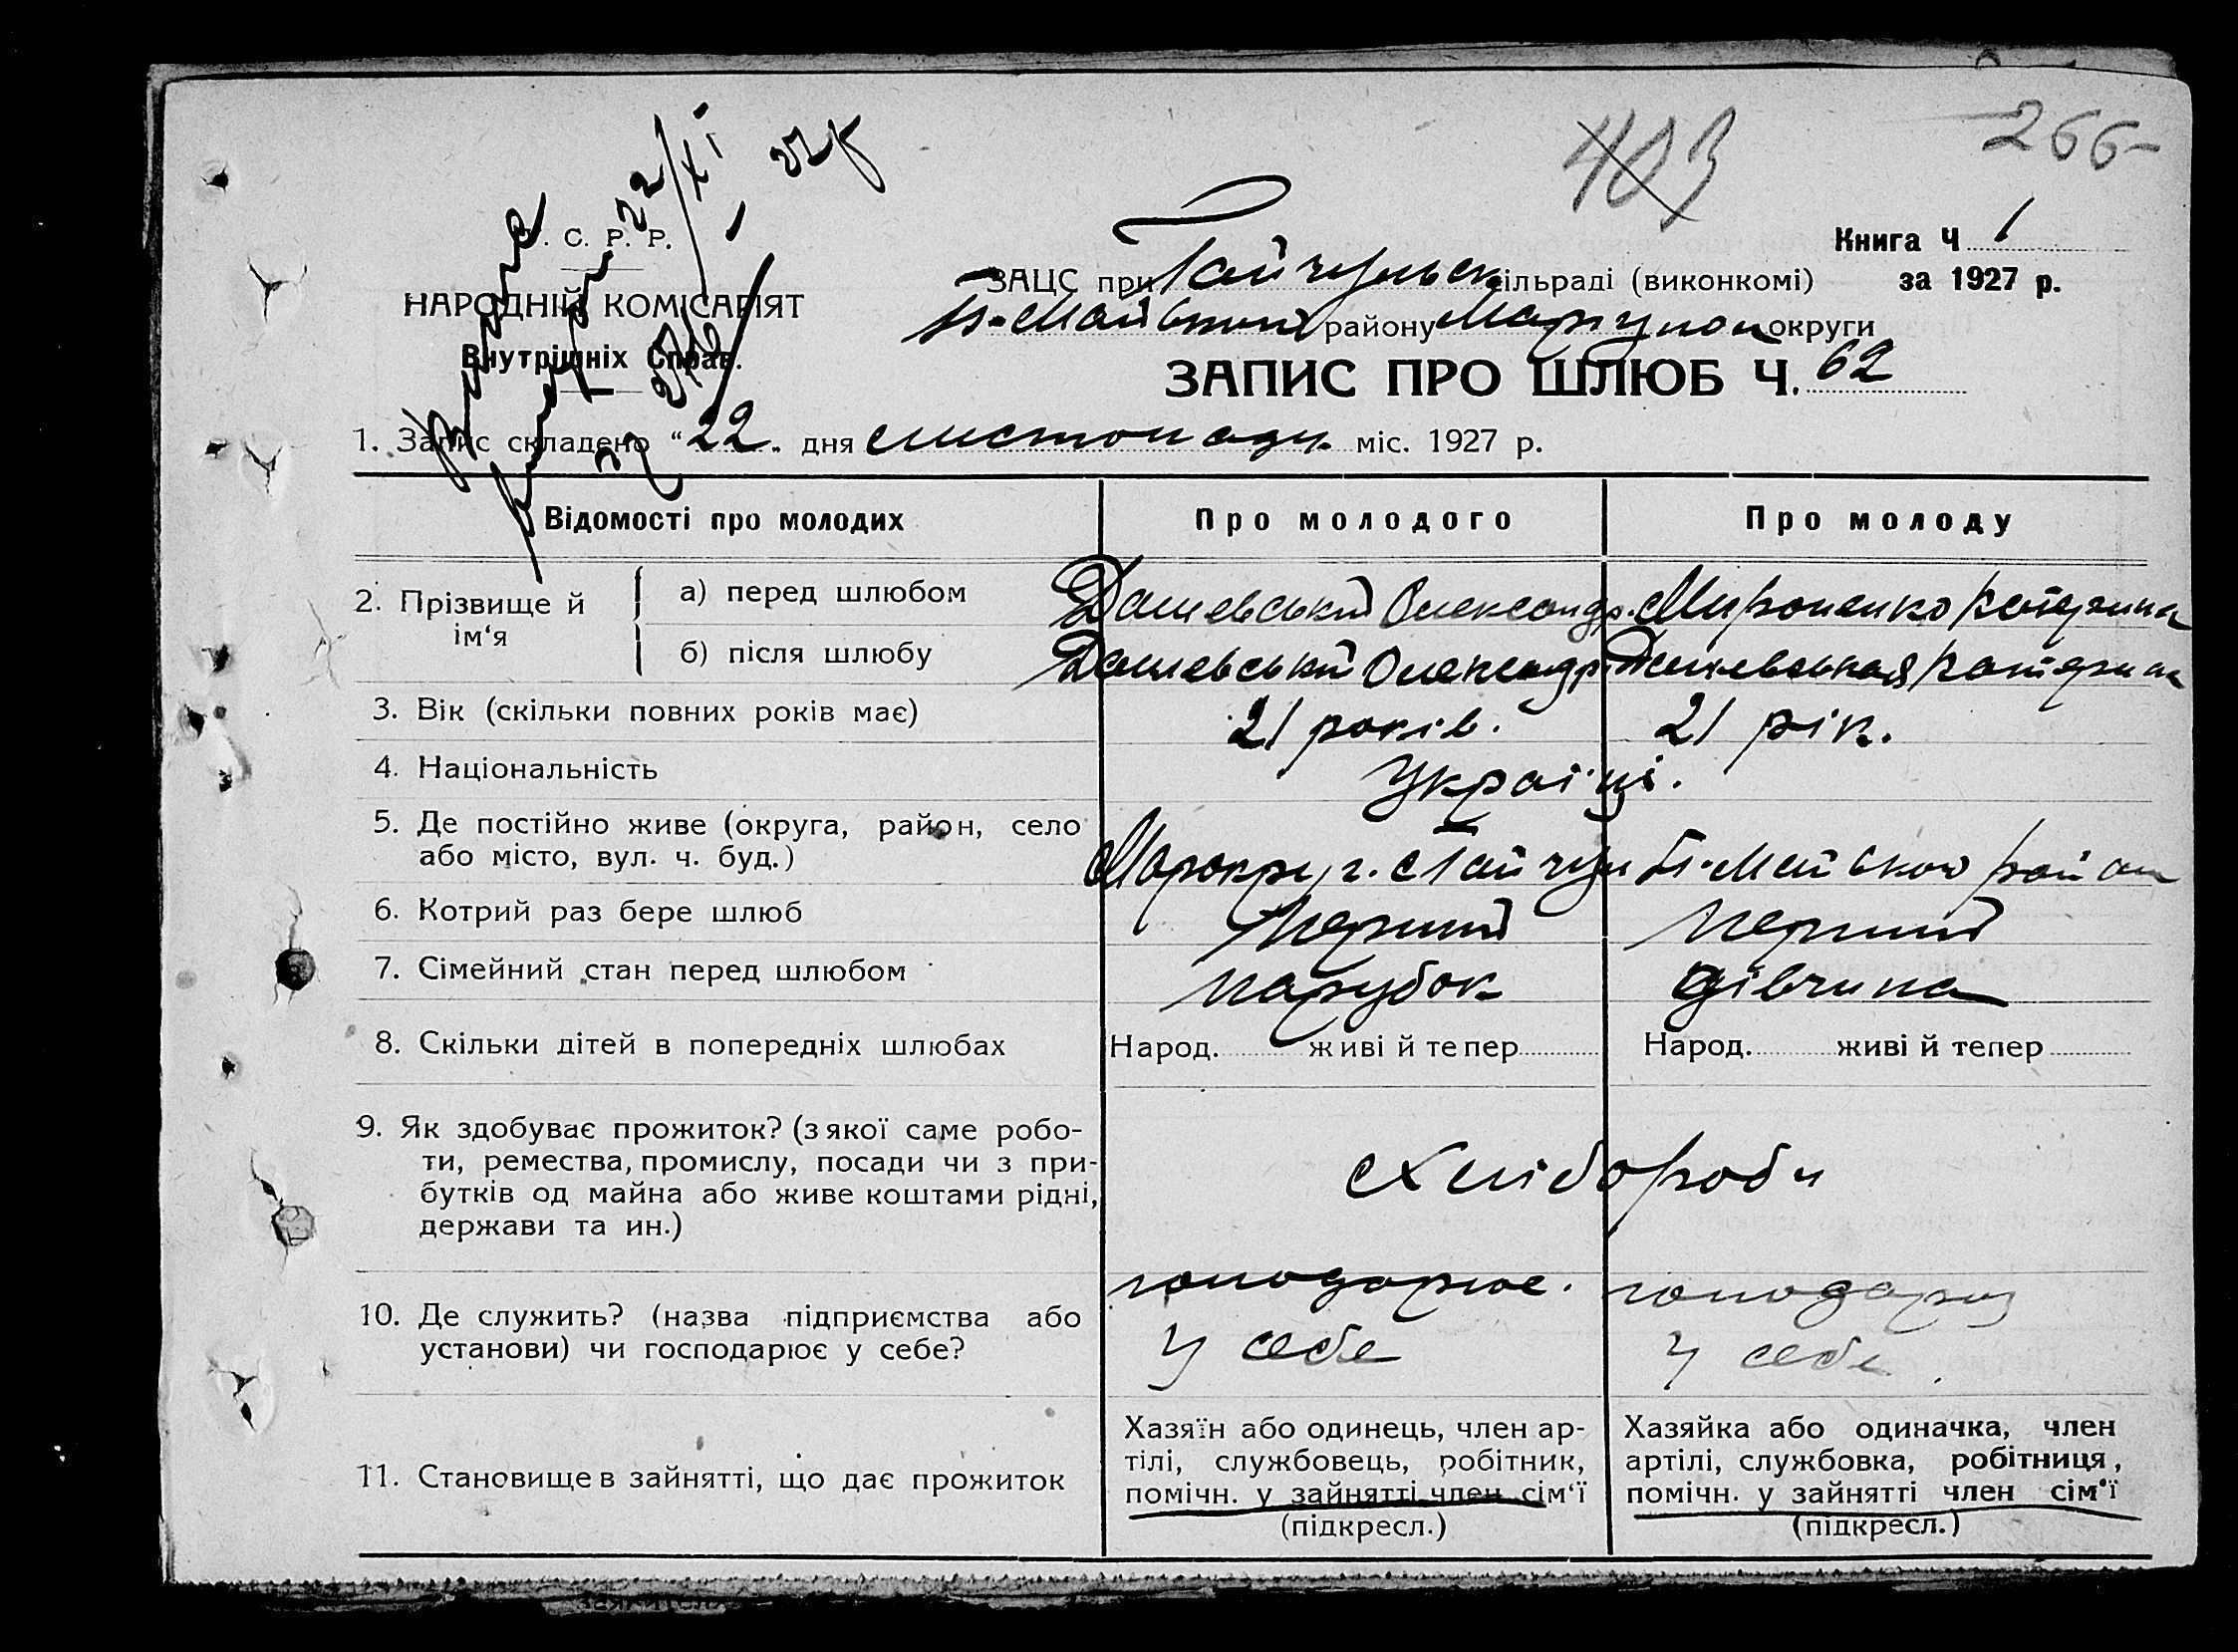 403
266-
У. С. Р. Р.
НАРОДНІЙ КОМІСАРІЯТ
Внутрішніх Справ.
22/XI
Книга Ч 1
за 1927 р.
ЗАЦС при Гайчульск сільраді (виконкомі)
району Маріупол округи
ЗАПИС ПРО ШЛЮБ Ч. 62
1. Запис складено "22" дня листопаду міс. 1927 р.
Відомості про молодих
Про молодого
Про молоду
2. Прізвище й ім‘я
а) перед шлюбом
Дашевський Олександр.
Мироненко Катерина
б) після шлюбу
Дашевський Олександр.
Дашевськая Катерина
3. Вік (скільки повних років має)
21 років.
21 рік.
4. Національність
Україці.
5. Де постійно живе (округа, район, село
або місто, вул. ч. буд.)
Марокруг. с Гайчул Б-Майськог район
6. Котрий раз бере шлюб
перший
перший
7. Сімейний стан перед шлюбом
парубок
дівчина
8. Скільки дітей в попередніх шлюбах
Народ. живі й тепер
Народ. живі й тепер
9. Як здобуває прожиток? (з якої саме робо-
ти, ремества, промислу, посади чи з при-
бутків од майна або живе коштами рідні,
держави та ин.)
Хлібороби
10. Де служить? (назва підприємства або
установи) чи господарює у себе?
господарює.
у себе
господарює
у себе
11. Становище в зайнятті, що дає прожиток
Хазяїн або одинець, член ар-
тілі, службовець, робітник,
помічн. у зайнятті член сім‘ї
(підкресл.)
Хазяйка або одиначка, член
артілі, службовка, робітниця,
помічн. у зайнятті член сім‘ї
(підкресл.)